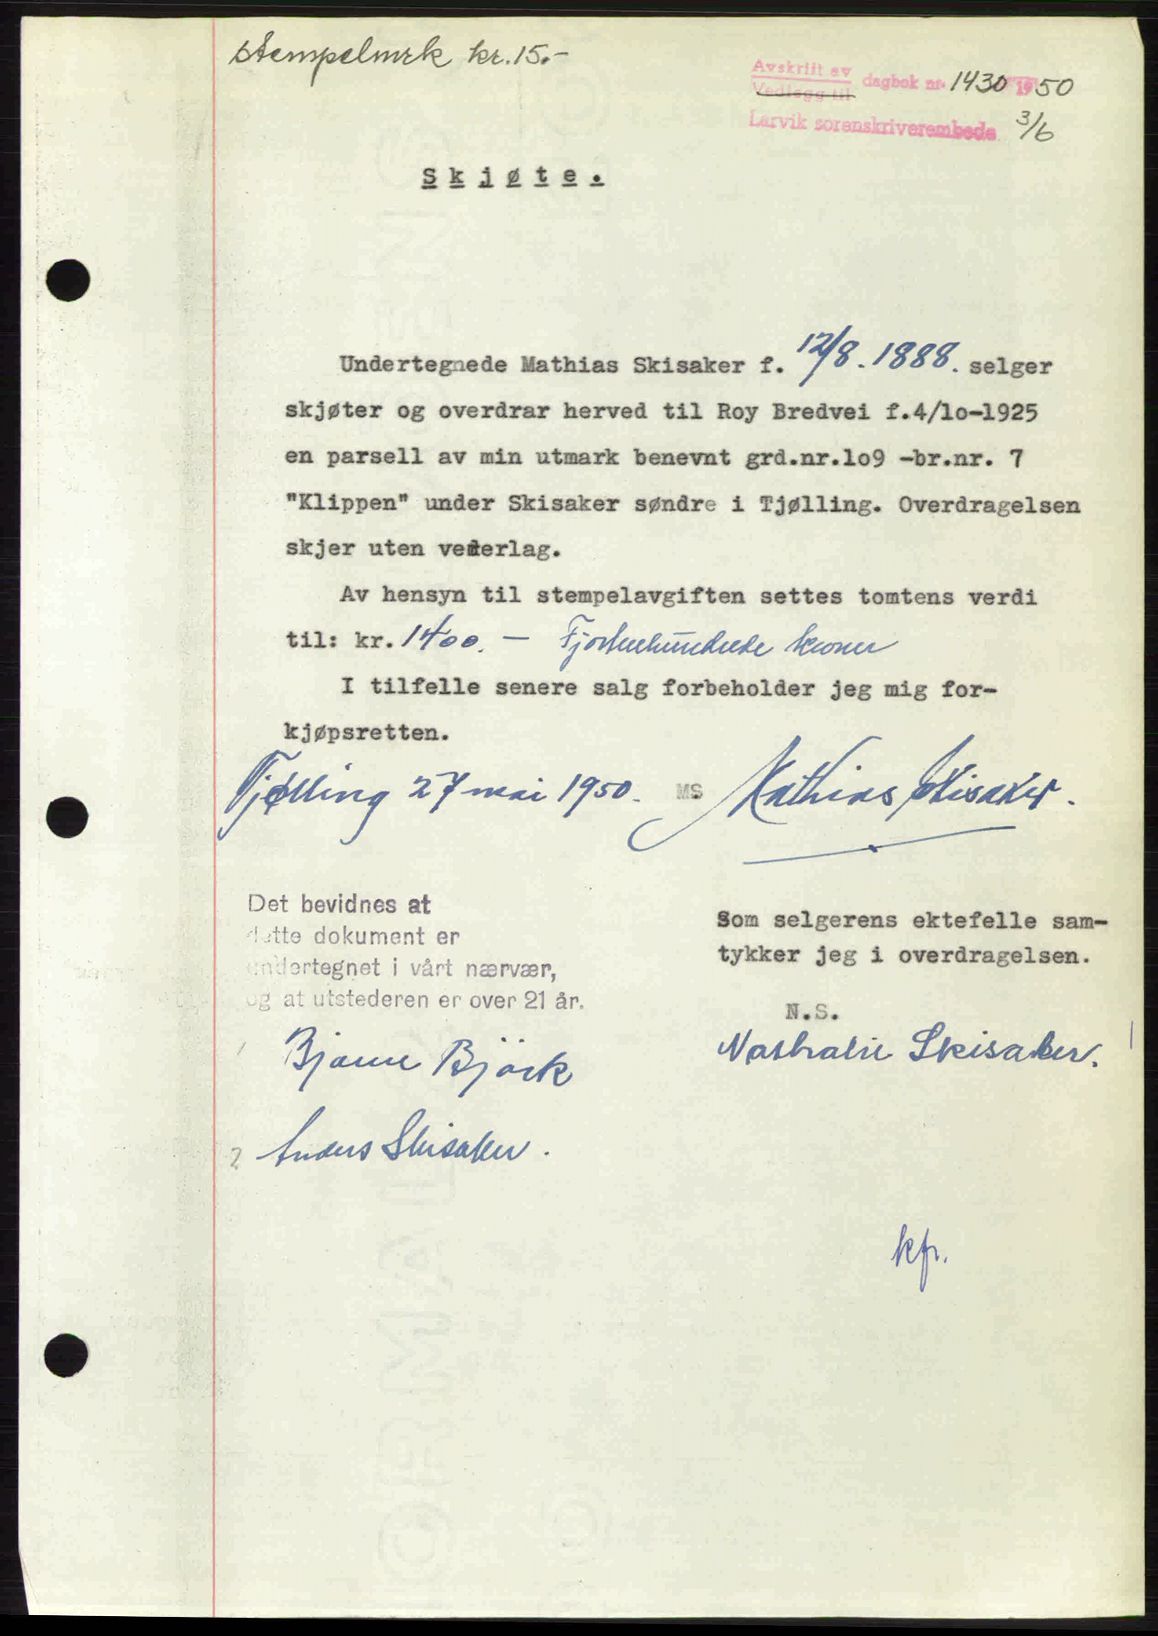 Stempelmrk kr. 15.-
Avskrift av
Vedlegg til
dagbok nr. 1430 1950
Larvik sorenskriverembede 3/6
Skjøte.
Undertegnede Mathias Skisaker f. 12/8. 1888. selger
skjøter og overdrar herved til Roy Bredvei f.4/lo-1925
en parsell av min utmark benevnt grd.nr.lo9 -br.nr. 7
"Klippen" under Skisaker søndre i Tjølling. Overdragelsen
skjer uten vederlag.
Av hensyn til stempelavgiften settes tomtens verdi
til: kr. 1400. - Fjortenhundrede kroner
I tilfelle senere salg forbeholder jeg mig for-
kjøpsretten.
Tjølling 27 mai 1950. MS Mathias Skisaker.
Det bevidnes at
dette dokument er
undertegnet i vårt nærvær,
og at utstederen er over 21 år.
Som selgerens ektefelle sam-
tykker jeg i overdragelsen.
N.S.
Nathalie Skisaker.
1 Bjarne Bjørk
2 Anders Skisaker.
kfr.